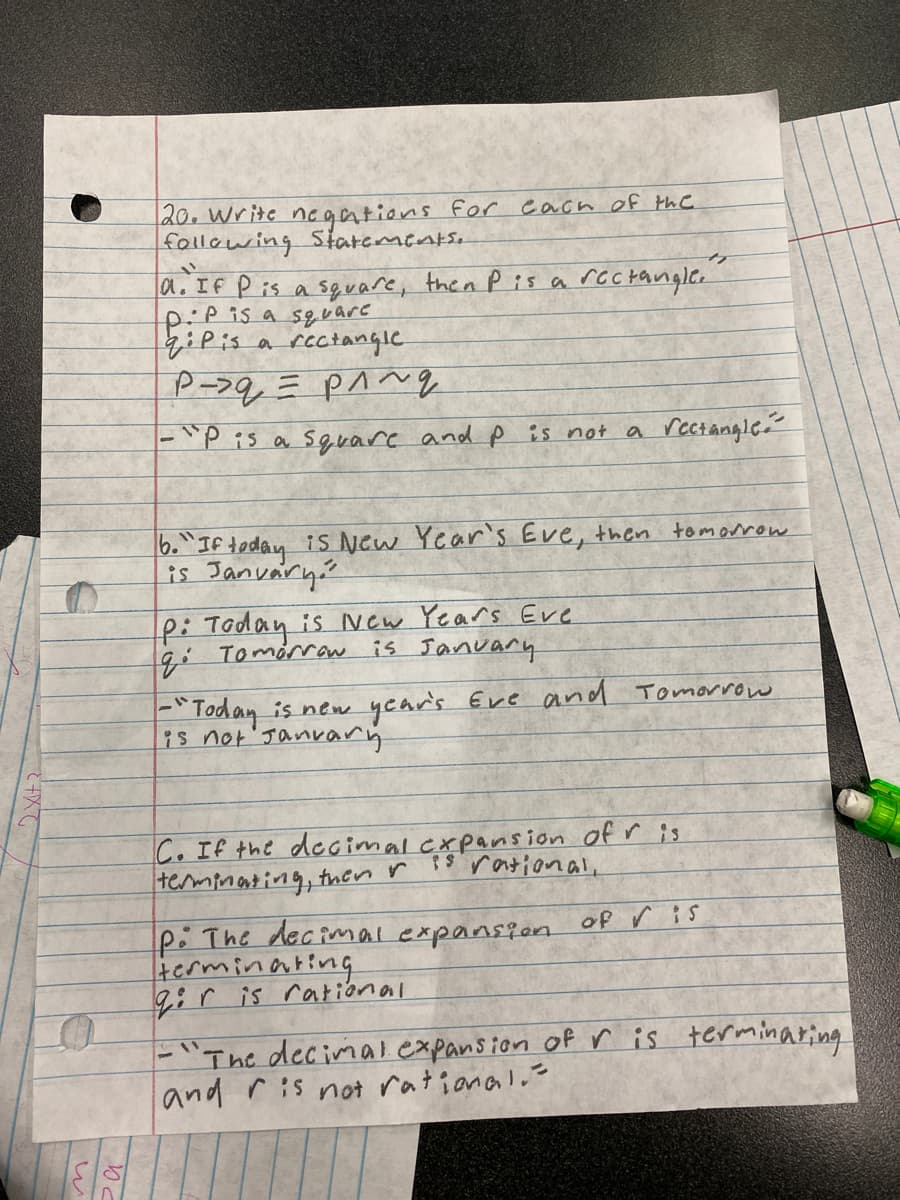 20. Write negations for each of the
following Statements.
a. "If P is a square, then P is a rectangle."
p: P is a square
q: P is a rectangle
P->q ≡ p∧~q
- "P is a square and p is not a rectangle."
b. "If today is New Year's Eve, then tomorrow
is January."
p: Today is New Years Eve
q: Tomorrow is January
- "Today is new year's Eve and Tomorrow
is not January
C. If the decimal expansion of r is
terminating, then r is rational,
p: The decimal expansion of r is
terminating
q: r is rational
- "The decimal expansion of r is terminating
and r is not rational."
2x+2